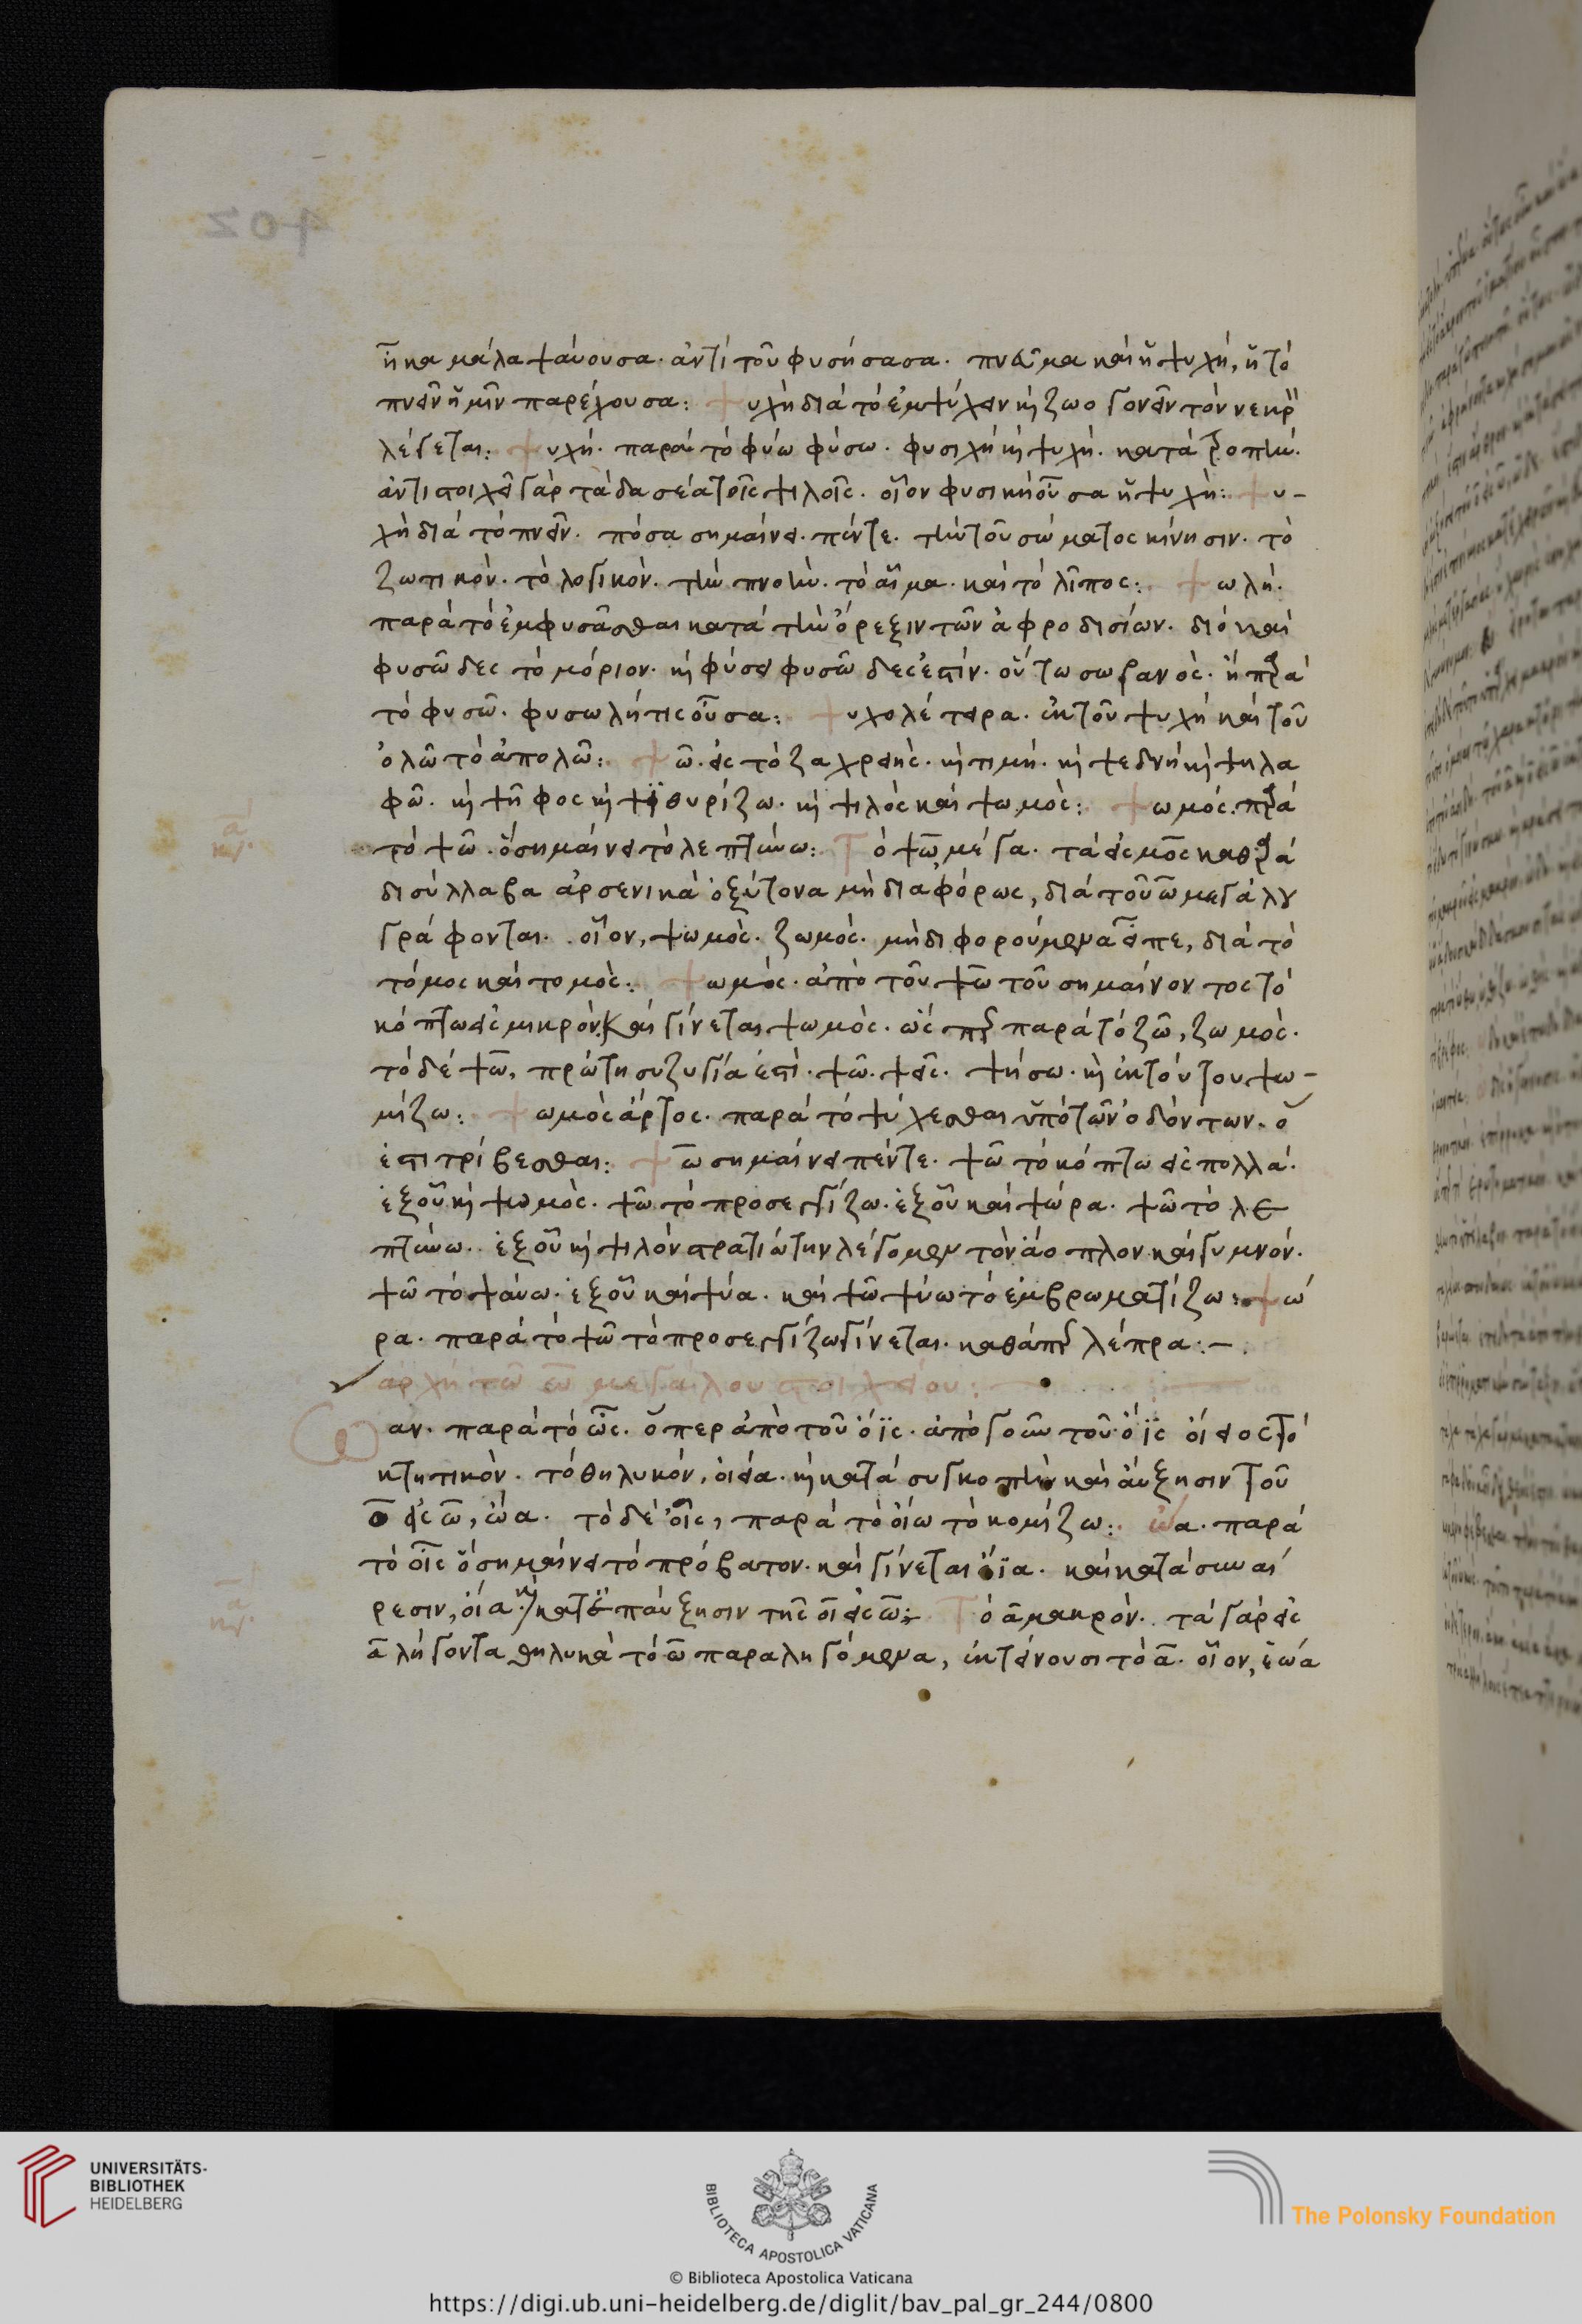 ἥκα μάλα ψύχουσα. ἀντὶ τοῦ φυσήσασα. πνεῦμα καὶ ἡ ψυχή, ἢ τὸ
πνεῖν ἡμῖν παρέχουσα: ψυχὴ διὰ τὸ ἐμψύχειν καὶ ζωογονεῖν τὸν νεκρ
λέγεται: ψυχή. παρὰ τὸ φύω φύσω. φυσιχὴ καὶ ψυχή. κατὰ τροπὴν.
ἀντιστοιχεῖ γὰρ τὰ δασέα τοῖς ψιλοῖς. οἷον φυσικὴ οὖσα ἡ ψυχὴ: ψυ-
χὴ διὰ τὸ πνεῖν. πόσα σημαίνει. πέντε. τὴν τοῦ σώματος κίνησιν. τὸ
ζωτικὸν. τὸ λογικὸν. τὴν πνοὴν. τὸ αἷμα. καὶ τὸ λῖπος: ψωλή.
παρὰ τὸ ἐμφυσᾶσθαι κατὰ τὴν ὄρεξιν τῶν ἀφροδισίων. διὸ καὶ
φυσῶδες τὸ μόριον. καὶ φύσει φυσῶδες ἐστίν. οὕτω σωρανὸς. ἢ παρὰ
τὸ φυσῶ. φυσωλή τις οὖσα: ψυχολέτειρα. ἐκ τοῦ ψυχή καὶ τοῦ
ὀλῶ τὸ ἀπολῶ: ψῶ. εἰς τὸ ζαχρειής. καὶ τιμή. καὶ ψεδνή καὶ ψηλα
φῶ. καὶ ψῆφος καὶ ψϊθυρίζω. καὶ ψιλὸς καὶ ψωμὸς: ψωμός. παρὰ
τὸ ψῶ. ὃ σημαίνει τὸ λεπτύνω: Τὸ ψω μέγα. τὰ εἰς μος καθαρὰ
δισύλλαβα ἀρσενικὰ ὀξύτονα μὴ διαφόρως, διὰ τοῦ ω μεγάλου
γράφονται. οἷον, ψωμὸς. ζωμὸς. μὴ διφορούμενα εἶπε, διὰ τὸ
τόμος καὶ τομὸς: ψωμὸς. ἀπὸ τοῦ ψῶ τοῦ σημαίνοντος τὸ
κόπτω εἰς μικρὸν. Καὶ γίνεται ψωμὸς. ὡς περ παρὰ τὸ ζῶ, ζωμὸς.
τὸ δὲ ψῶ, πρώτη συζυγία ἐστὶ. ψῶ. ψεῖς. ψήσω. καὶ ἐκ τούτου ψω-
μίζω: ψωμὸς ἄρτος. παρὰ τὸ ψύχεσθαι ὑπὸ τῶν ὀδόντων. ὃ
ἐστι τρίβεσθαι: ψῶ σημαίνει πέντε. ψῶ τὸ κόπτω εἰς πολλά.
ἐξοῦ καὶ ψωμὸς. ψῶ τὸ προσεγγίζω. ἐξοῦ καὶ ψώρα. ψῶ τὸ λε
πτύνω. ἐξοῦ καὶ ψιλόν στρατιώτην λέγομεν τὸν ἄοπλον καὶ γυμνόν.
ψῶ τὸ ψαύω. ἐξοῦ καὶ ψύα. καὶ ψῶ ψύω τὸ ἐμβρωματίζω: ψώ
ρα. παρὰ τὸ ψῶ τὸ προσεγγίζω γίνεται. καθάπερ λέπρα:-
αρχὴ τοῦ ω μεγάλου στοιχείου:
Ωαν. παρὰ τὸ ὦϊς. ὅπερ ἀπὸ τοῦ ὄϊς. ἀπὸ γοῦν τοῦ ὄϊς οἴειος τὸ
κτητικὸν. τὸ θηλυκόν, οἰεία. καὶ κατὰ συγκοπὴν καὶ αὔξησιν τοῦ
ο εἰς ω, ὤα. τὸ δὲ οἶς, παρὰ τὸ οἴω τὸ κομίζω: ὤα. παρὰ
τὸ οἶς ὃ σημαίνει τὸ πρόβατον. καὶ γίνεται ὄϊα. καὶ κατὰ συναί
ρεσιν, οἴα. καὶ κατ' ἐπαύξησιν τῆς οι εἰς ω: Τὸ α μακρὸν. τὰ γὰρ εἰς
α λήγοντα θηλυκὰ τὸ ω παραληγόμενα, ἐκτείνουσι τὸ α. οἷον, ἑωά
UNIVERSITÄTS-
BIBLIOTHEK
HEIDELBERG
BIBLIOTECA APOSTOLICA VATICANA
The Polonsky Foundation
© Biblioteca Apostolica Vaticana
https://digi.ub.uni-heidelberg.de/diglit/bav_pal_gr_244/0800